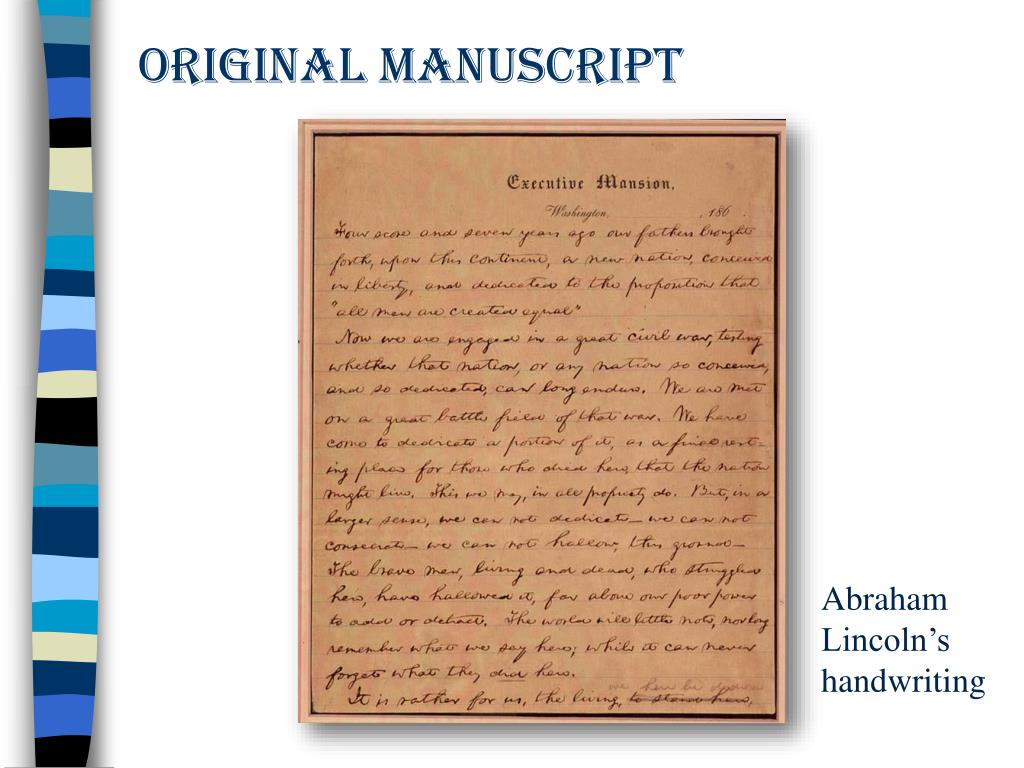 ORIGINAL MANUSCRIPT
Executive Mansion,
Washington, , 186 .
Four score and seven years ago our fathers brought
forth, upon this continent, a new nation, conceived
in liberty, and dedicated to the proposition that
"all men are created equal"
Now we are engaged in a great civil war, testing
whether that nation, or any nation so conceived,
and so dedicated, can long endure. We are met
on a great battle field of that war. We have
come to dedicate a portion of it, as a final rest-
ing place for those who died here, that the nation
might live. This we may, in all propriety do. But, in a
larger sense, we can not dedicate — we can not
consecrate — we can not hallow, this ground —
The brave men, living and dead, who struggled
here, have hallowed it, far above our poor power
to add or detract. The world will little note, nor long
remember what we say here; while it can never
forget what they did here.
we here be dedica
It is rather for us, the living, to stand here,
Abraham
Lincoln’s
handwriting